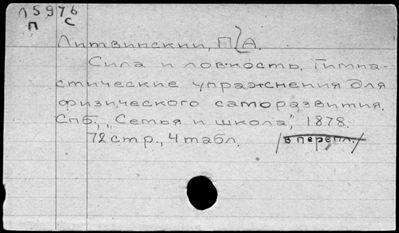 Л5976
П С
Литвинский, П[А.
Сила и ловкость. Гимна-
стические упражнения для
физического саморазвития.
Спб, „Семья и школа", 1878.
72 стр., 4 табл. /в перепл./